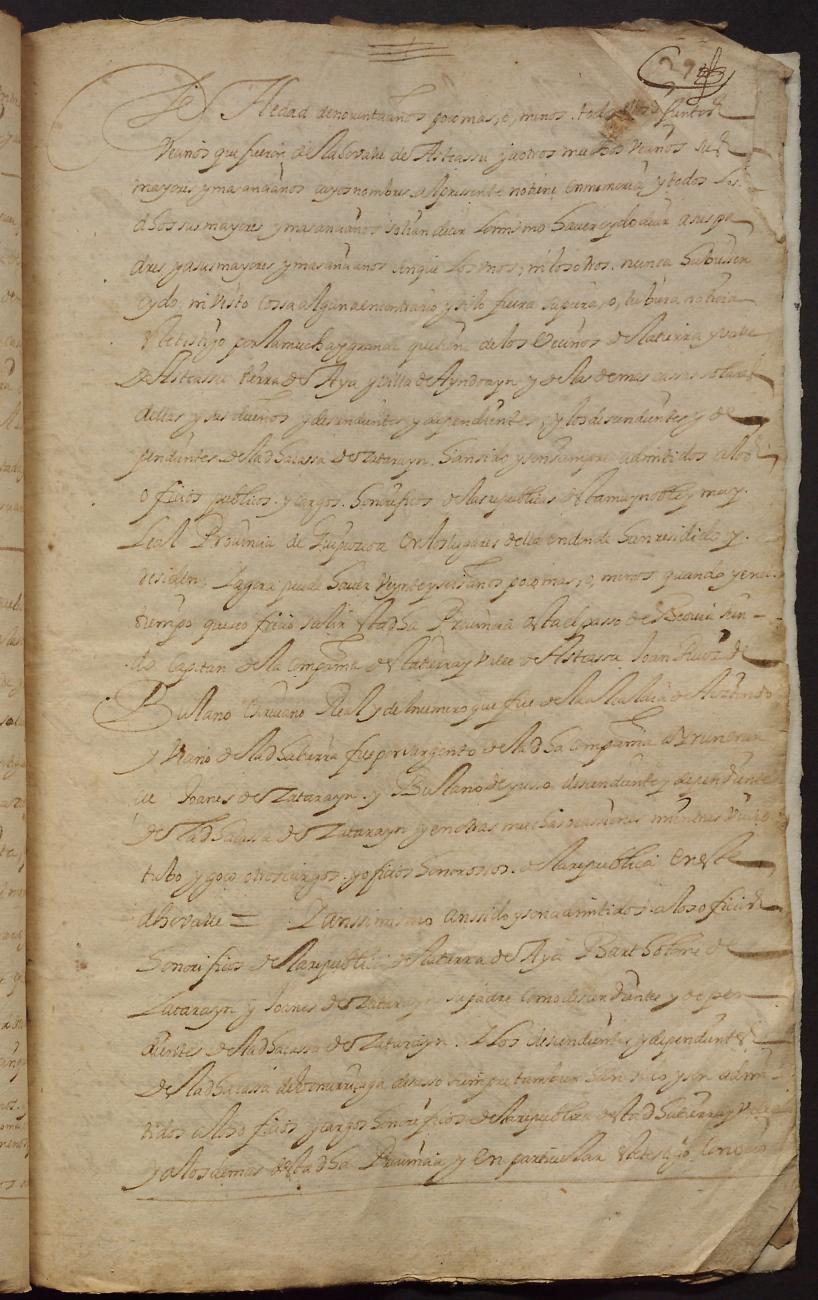 de Hedad de nouenta años poco mas, o, menos. todos
Vecinos que fueron del dho valle de Asteassu y a otros muchos vecinos sus
mayores y mas ancianos cuyos nombres al pressente no tiene en memoria y todos los
dhos sus mayores y mas ancianos solian decir lo mismo hauer oydo decir a sus pa
dres y a sus mayores y mas ancianos sin que los unos, ni los otros. nunca hubiessen
oydo, ni visto cossa alguna en contrario y si lo fuera supiera, o, tubiera noticia
este testigo por la mucha y grande que tiene de los Vecinos de la tierra y valle
De Asteassu tierra de Aya y villa de Ayndoayn y de las demas cassas solares
dellas y sus dueños y descendientes y dependientes, y los descendientes y de
pendientes de la dha cassa de Zatarayn. han sido y son siempre admitidos a los
officios publicos. y cargos. honorificos de las republicas desta muy noble y muy
Leal Prouincia de Guipuzcoa en los lugares della en donde han residido y.
residen. Y agora puede hauer veynte y seis años poco mas, o, menos quando y en el
tiempo que se hico salir esta dha Prouincia asta el passo de Beouia sien
do Capitan de la Compañia de la tierra y valle de Asteassu Joan Ruiz de
Bullano Escriuano Real y del numero que fue de la Alcaldia de Aiztondo
y vecino de la dha tierra fue por sargento de la dha Compañia
de Joanes de Zatarayn. y Bullano de yusso descendiente y dependiente
de la dha cassa de Zatarayn y en otras muchas ocassiones mientras
tubo y goço otros cargos. y oficios honorosos. de la republica en este
dho valle = Y assi mismo an ssido y son admitidos a los oficios
honorificos de la republica de la tierra de Aya Bartholome de
Zatarayn y Joanes de Zatarayn su padre como descendientes y depen
dientes de la dha cassa de Zatarayn. Y los descendientes y dependientes
de la dha cassa de siempre tambien han sido y son admi
tidos a los oficios y cargos honorificos de la republica de la dha tierra y valle
y a los demas desta dha Prouincia y en particular este testigo conocio